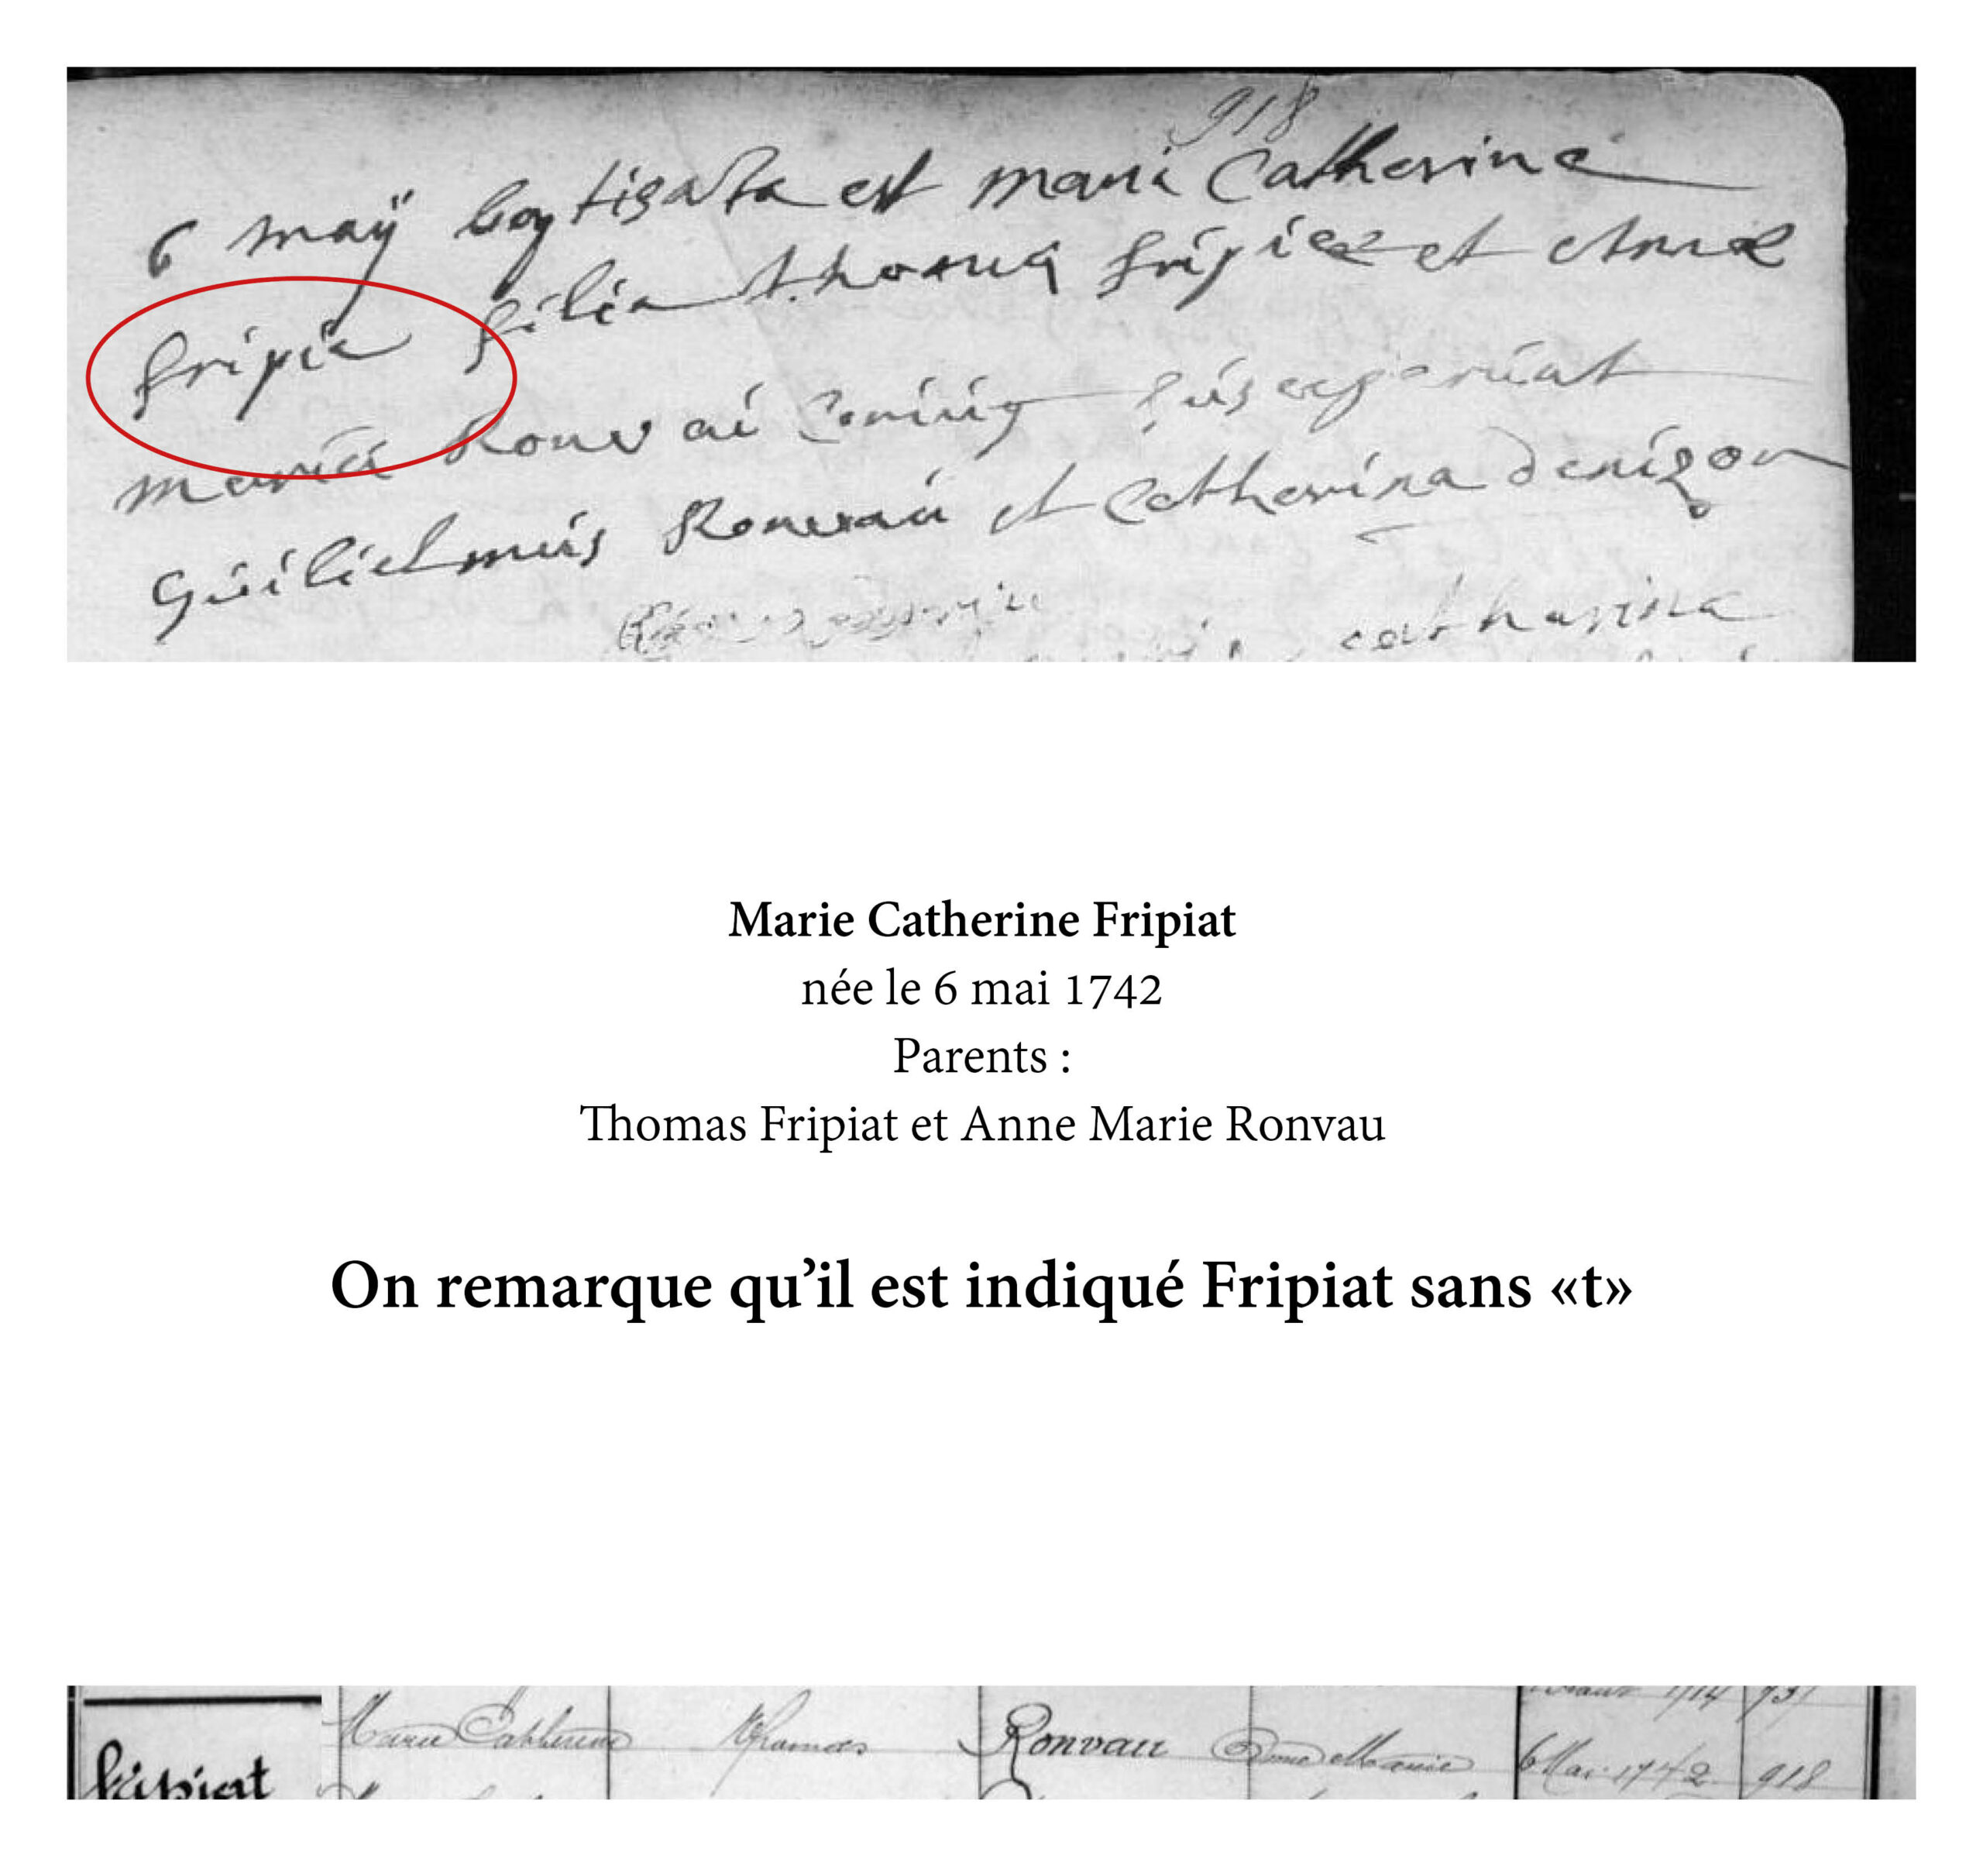 918
6 maÿ baptisata est maria Catherine
fripia filia thoma fripia et Anna
maria Ronvau
Guilielmus Ronvau et Catherina denizon
catharina
Marie Catherine Fripiat
née le 6 mai 1742
Parents :
Thomas Fripiat et Anne Marie Ronvau
On remarque qu’il est indiqué Fripiat sans «t»
1714 931
Fripiat Marie Catherine Thomas Ronvau Anne Marie 6 Mai 1742 918